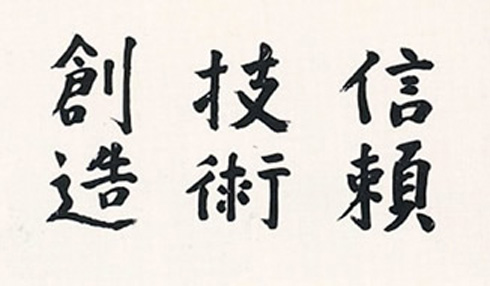 信頼
技術
創造